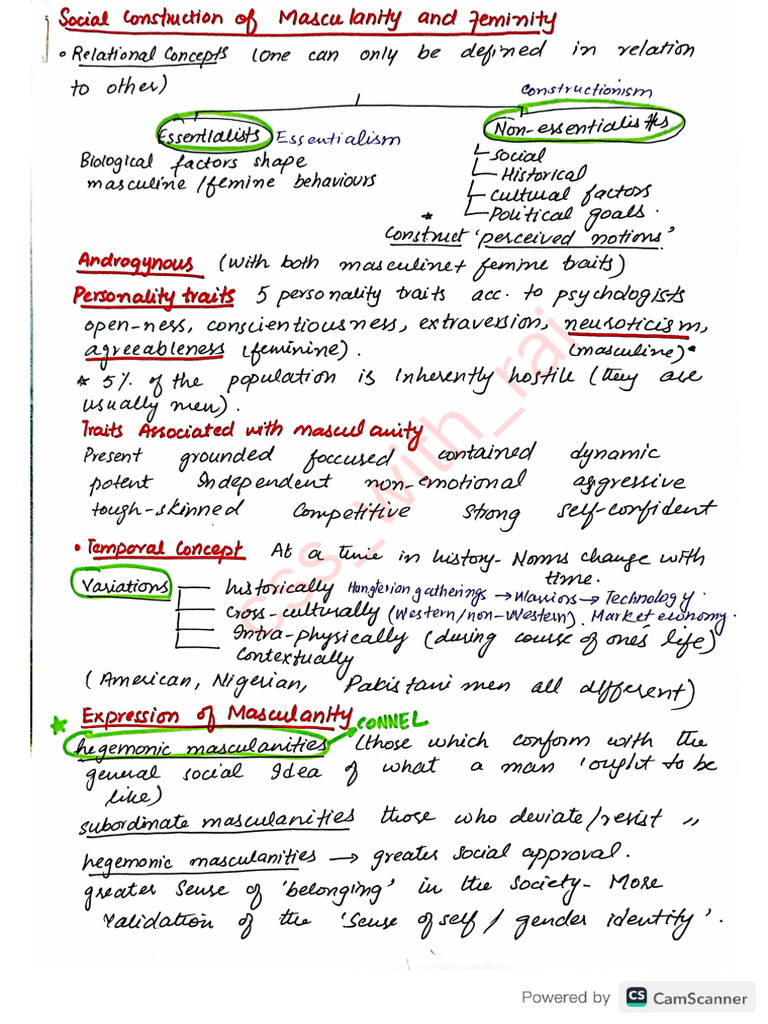 Social Construction of Masculanity and Feminity
• Relational Concepts (one can only be defined in relation
to other)
Constructionism
Essentialists Essentialism
Non-essentialists
Biological factors shape
masculine/femine behaviours
Social
Historical
Cultural factors
Political goals.
* Construct 'perceived notions'
Androgynous (with both masculine + femine traits)
Personality traits 5 personality traits acc. to psychologists
open-ness, conscientiousness, extraversion, neuroticism,
agreeableness (feminine). (masculine)*
* 5% of the population is inherently hostile (they are
usually men).
Traits Associated with masculanity
Present grounded foccused contained dynamic
potent Independent non-emotional aggressive
tough-skinned Competitive Strong Self-confident
• Temporal Concept At a time in history- Norms change with
time.
Variations
historically Hungterian gatherings → Warriors → Technology.
Cross-culturally (Western/non-Western). Market economy.
Intra-physically (during course of one's life)
Contextually
(American, Nigerian, Pakistani men all different)
* Expression of Masculanity CONNEL
hegemonic masculanities (those which conform with the
general social Idea of what a man 'ought to be
like)
subordinate masculanities those who deviate/resist "
hegemonic masculanities → greater social approval.
greater sense of 'belonging' in the society- More
validation of the 'sense of self / gender identity'.
css_with_rai
Powered by CS CamScanner